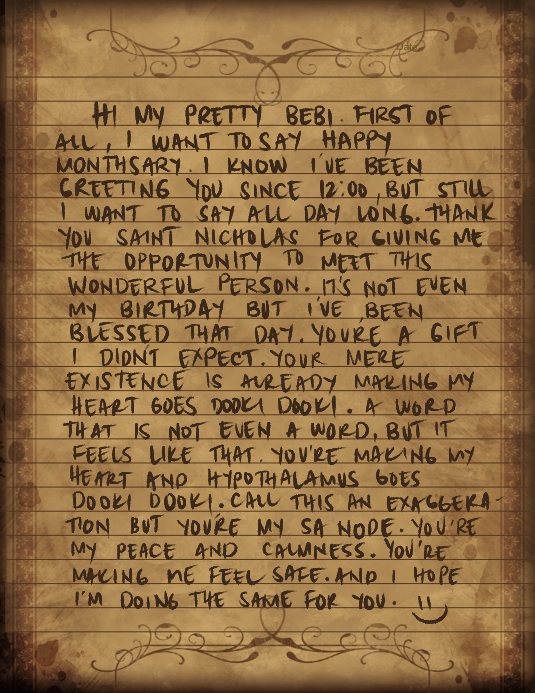 Date
HI MY PRETTY BEBI. FIRST OF
ALL, I WANT TO SAY HAPPY
MONTHSARY. I KNOW I'VE BEEN
GREETING YOU SINCE 12:00, BUT STILL
I WANT TO SAY ALL DAY LONG. THANK
YOU SAINT NICHOLAS FOR GIVING ME
THE OPPORTUNITY TO MEET THIS
WONDERFUL PERSON. IT'S NOT EVEN
MY BIRTHDAY BUT I'VE BEEN
BLESSED THAT DAY. YOU'RE A GIFT
I DIDN'T EXPECT. YOUR MERE
EXISTENCE IS ALREADY MAKING MY
HEART GOES DOOKI DOOKI. A WORD
THAT IS NOT EVEN A WORD, BUT IT
FEELS LIKE THAT. YOU'RE MAKING MY
HEART AND HYPOTHALAMUS GOES
DOOKI DOOKI. CALL THIS AN EXAGGERA-
TION BUT YOU'RE MY SA NODE. YOU'RE
MY PEACE AND CALMNESS. YOU'RE
MAKING ME FEEL SAFE. AND I HOPE
I'M DOING THE SAME FOR YOU.